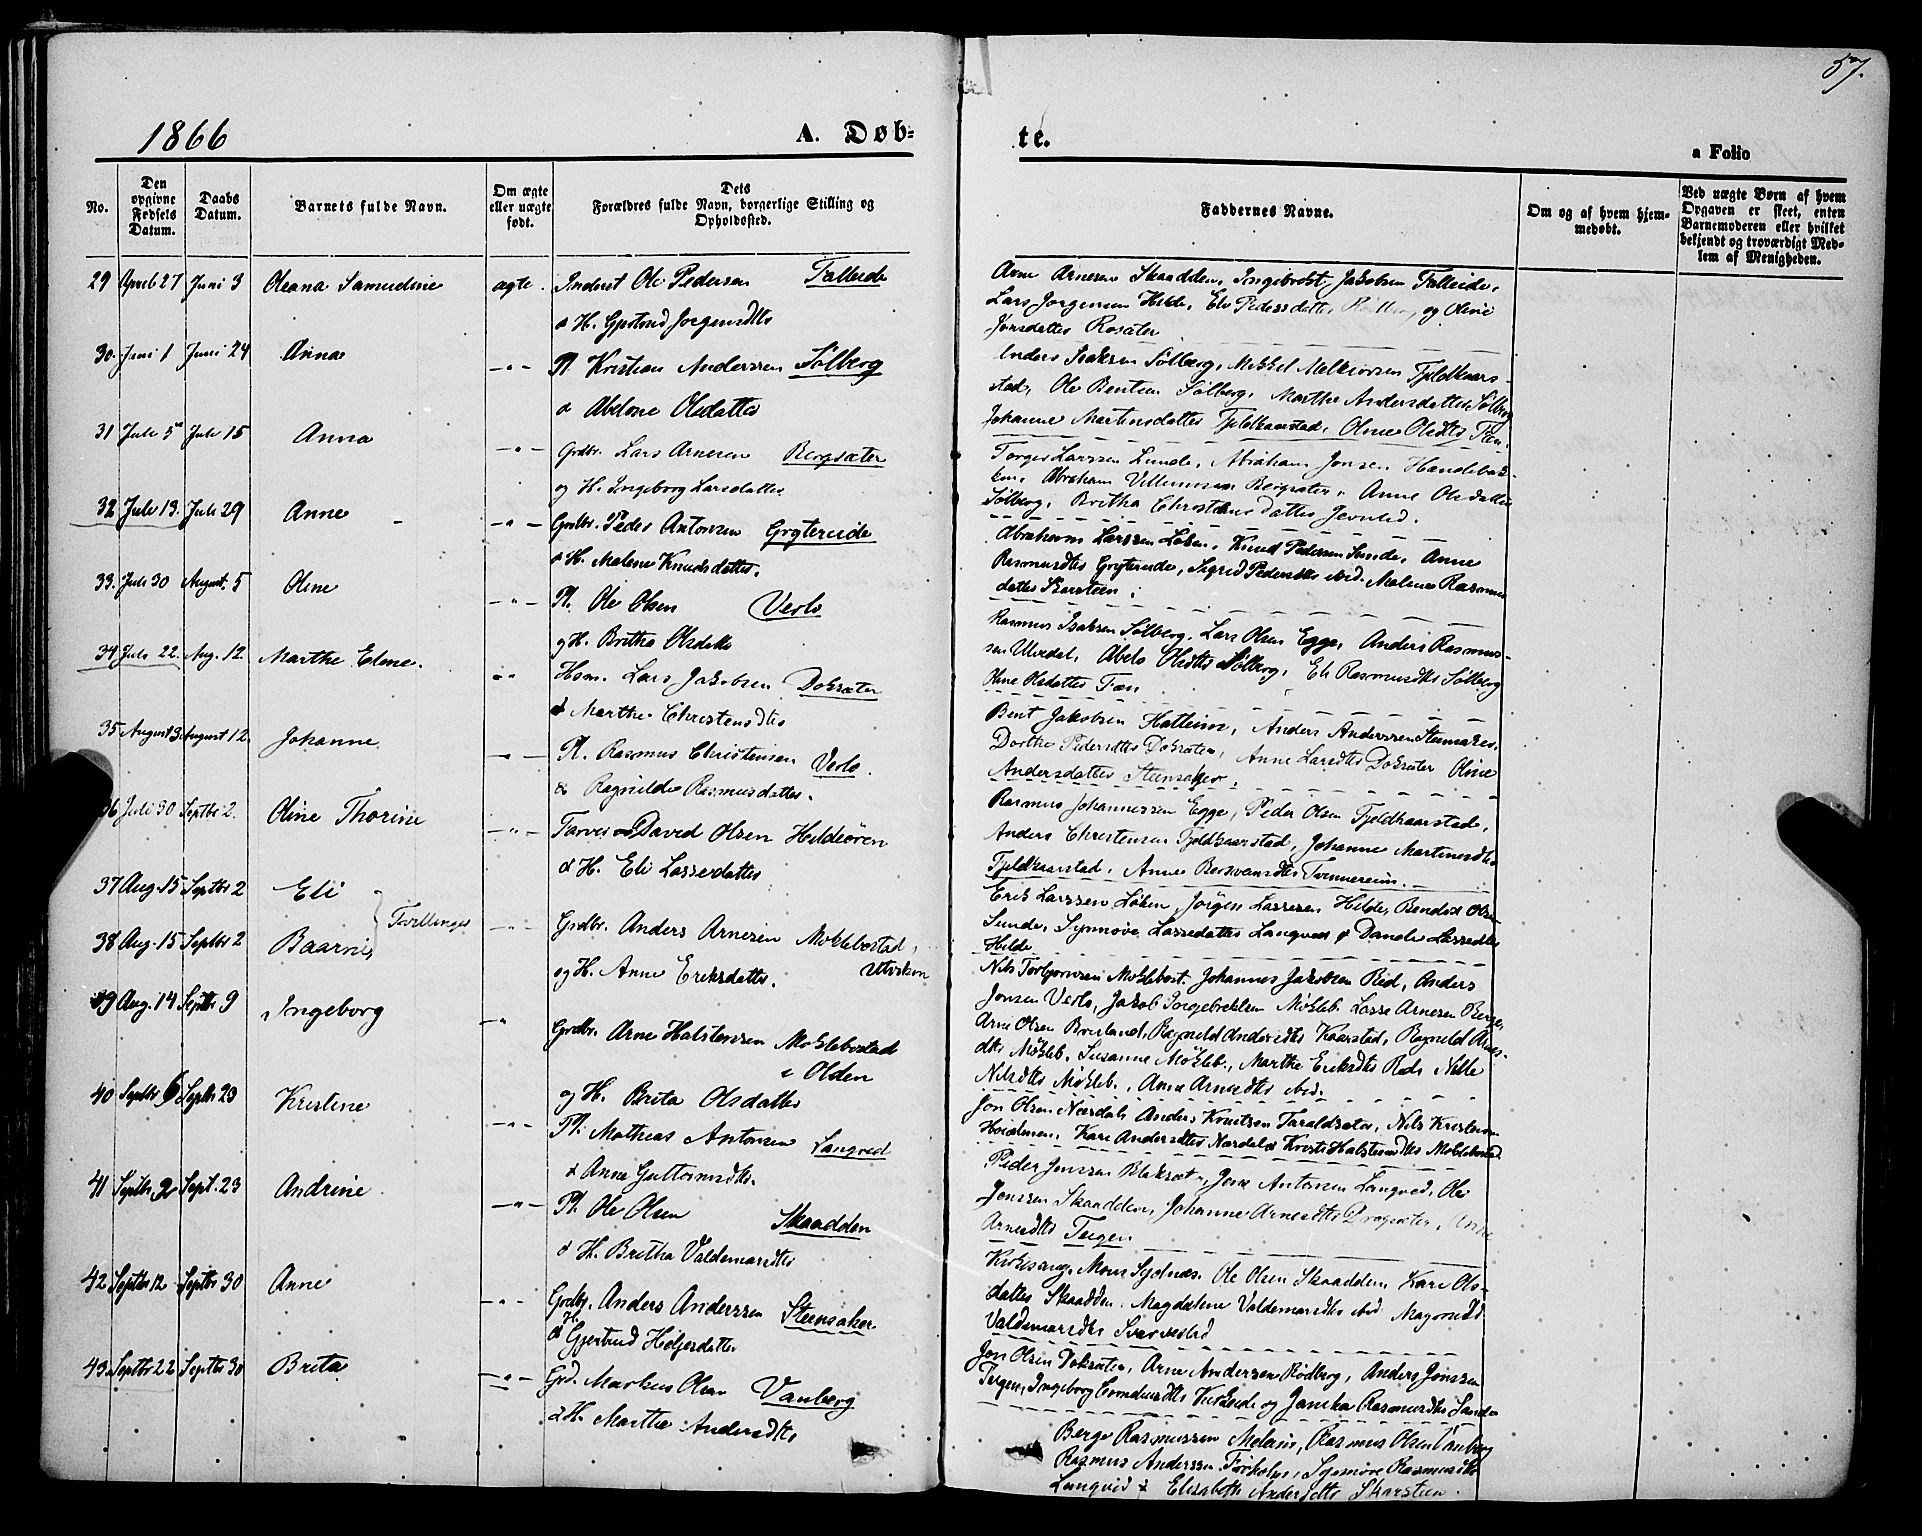 57.
1866
A. Døb-
te.
a Folio
No.
Den opgivne Fødsels Datum.
Daabs Datum.
Barnets fulde Navn.
Om ægte eller uægte født.
Dets Forældres fulde Navn, borgerlige Stilling og Opholdssted.
Faddernes Navne.
Om og af hvem hjemmedøbt.
Ved uægte Børn af hvem Opgaven er skeet, enten Barnemoderen eller hvilket bekjendt og troværdigt Medlem af Menigheden.
29 April 27 Juni 3 Oleana Samudine ægte. Inderst Ole Pedersen Falleide
& H. Gjertrud Jørgensdtr
Arne Arnesen Skaadden, Ingebrebt Jakobsen Falleide,
Lars Jørgensen Hilde, Eli Pedersdatter og Oline
Jonsdatter Rosæter
30. Juni 1 Juni 24 Anna -"- Pl. Kristian Anderssen Sølberg
& Abelone Olsdatter
Anders Isaksen Sølberg, Mikkel Melkiorsen Fjeldkaar-
stad, Ole Bentsen Sølberg, Marthe Andersdatter Sølberg
Johanne Martinsdatter Fjeldkaarstad, Oline Olsdtr Fæn
31 Juli 5te Juli 15 Anna -"- Grdbr. Lars Arnesen Bergsæter
og H. Ingeborg Larsdatter
Torger Larssen Lunde, Abraham Jonsen Handebak-
ken, Abraham Villumsen Bergsæter, Anne Olsdatter
Sølberg, Britha Christensdatter Jevnlid.
32 Juli 13. Juli 29 Anne -"- Grdbr. Peder Antonsen Grytereide
& H. Malene Knudsdatter.
Abraham Larssen Løken, Knud Pedersen Sunde, Anne
Rasmusdtr Grytereide, Sigrid Pedersdtr ibid. Malene Rasmus
datter Skarsteen
33. Juli 30 August. 5 Oline -"- Pl. Ole Olsen Verlo
og H. Britha Olsdatter
Rasmus Isaksen Sølberg, Lars Olsen Egge, Anders Rasmus-
sen Ulvedal, Abelo Olsdtr Sølberg, Eli Rasmusdtr Sølberg
Oline Olsdatter Fæn
34 Juli 22. Aug. 12 Marthe Eline. -"- Hsm. Lars Jakobsen Doksæter
& Marthe Christensdtr
Bent Jakobsen Hatleim, Anders Anderssen Steensaker,
Dorthe Pedersdtr Doksæter, Anne Larsdtr Doksæter Oline
Andersdatter Steensaker.
35 August 3 August 12 Johanne. -"- Pl. Rasmus Christensen Verlo.
& Ragnilde Rasmusdatter.
Rasmus Johannessen Egge, Peder Olsen Fjeldkaarstad,
Anders Christensen Fjeldkaarstad, Johanne Martinusdtr
Fjeldkaarstad, Anne Tvennereim.
36 Juli 30 Septbr 2. Oline Thorine -"- David Olsen Hildeøren
& H. Eli Lassedatter
Erik Larssen Løken, Jørgen Lassesen Hilde, Bendix Olsen
Sunde, Synnøve Lassedatter Langved & Danele Lassedtr
Hilde
37 Aug. 15 Septbr 2 Eli
38 Aug. 15 Septbr 2 Baarni
Tvillinger -"- Grdbr. Anders Arnesen Moklebostad,
Utviken
og H. Anne Eriksdatter.
Nils Torbjørnsen Moklebost. Johannes Jakobsen Red, Anders
Jonsen Verlo, Jakob Ingebrektsen Mökleb. Lasse Arnesen Berge,
Arne Olsen Ragnild Andersdtr Kaarstad, Ragnild Arnes-
dtr Mökleb. Susanne Mökleb., Marthe Eriksdtr Red, Nille
Nilsdtr Mökleb., Anne Arnesdtr ibid.
39 Aug. 14 Septbr 9 Ingeborg -" Grdbr. Arne Halstensen Moklebostad
i Olden
og H. Brita Olsdatter
Jon Olsen Nærdal, Anders Knutsen Taraldsæter, Nils Kristensen
Kari Andersdtr Nærdal & Kirsti Halstensdtr Moklebostad
40 Septbr 6 Septbr 23 Kristine -"- Pl. Mathias Antonsen Langved
& Anne Guttormsdtr.
Peder Jonssen Blaksæt, Jens Antonsen Langved, Ole
Jonssen Skaadden, Johanne Arnesdtr Dragsæter,
Arnesdtr Teigen
41 Septbr 2 Sept. 23 Andrine -"- Pl. Ole Olsen Skaadden
& H. Britha Valdemarsdtr
Kirkesang. Mons Sydnæs. Ole Olsen Skaadden, Kari Ols-
datter Skaadden. Magdalene Valdemarsdtr ibid.
Valdemarsdtr
42 Septbr 12 Septbr 30 Anne -"- Grdbr. Anders Anderssen Steensaker
& H. Gjertrud Helgesdatter
Jon Olsen Doksæter, Arne Andersen Rødberg, Anders Jonssen
Teigen, Ingeborg Corneliusdtr Kirkeide og Janika Rasmusdtr Sande
43 Septbr 22 Septbr 30 Brita -"- Grd. Markus Olsen Vanberg
& H. Marthe Andersdtr
Berge Rasmussen Melem, Rasmus Olsen Vanberg
Rasmus Anderssen Synnøve Rasmusdtr
Langved & Elisabeth Andersdtr Skarsteen.